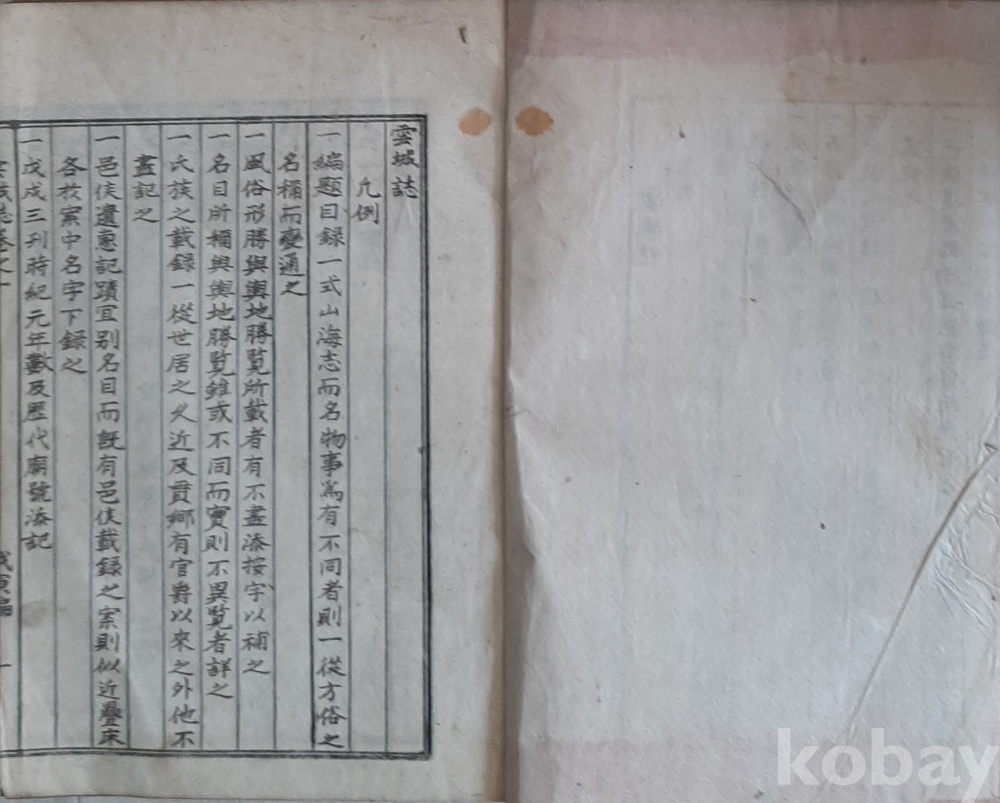 雲城誌
凡例
一編題目録一式山海志而名物事爲有不同者則一從方俗之
名稱而變通之
一風俗形勝與輿地勝覧所載者有不盡添按字以補之
一名目所稱與輿地勝覧雖或不同而實則不異覧者詳之
一氏族之載録一從世居之久近及貫鄉有官爵以來之外他不
盡記之
一邑倅遺惠記蹟宜别名目而旣有邑倅載録之案則似近疊床
各於案中名字下録之
一戊戌三刊時紀元年數及歷代廟號添記
誌卷之一
一
kobay